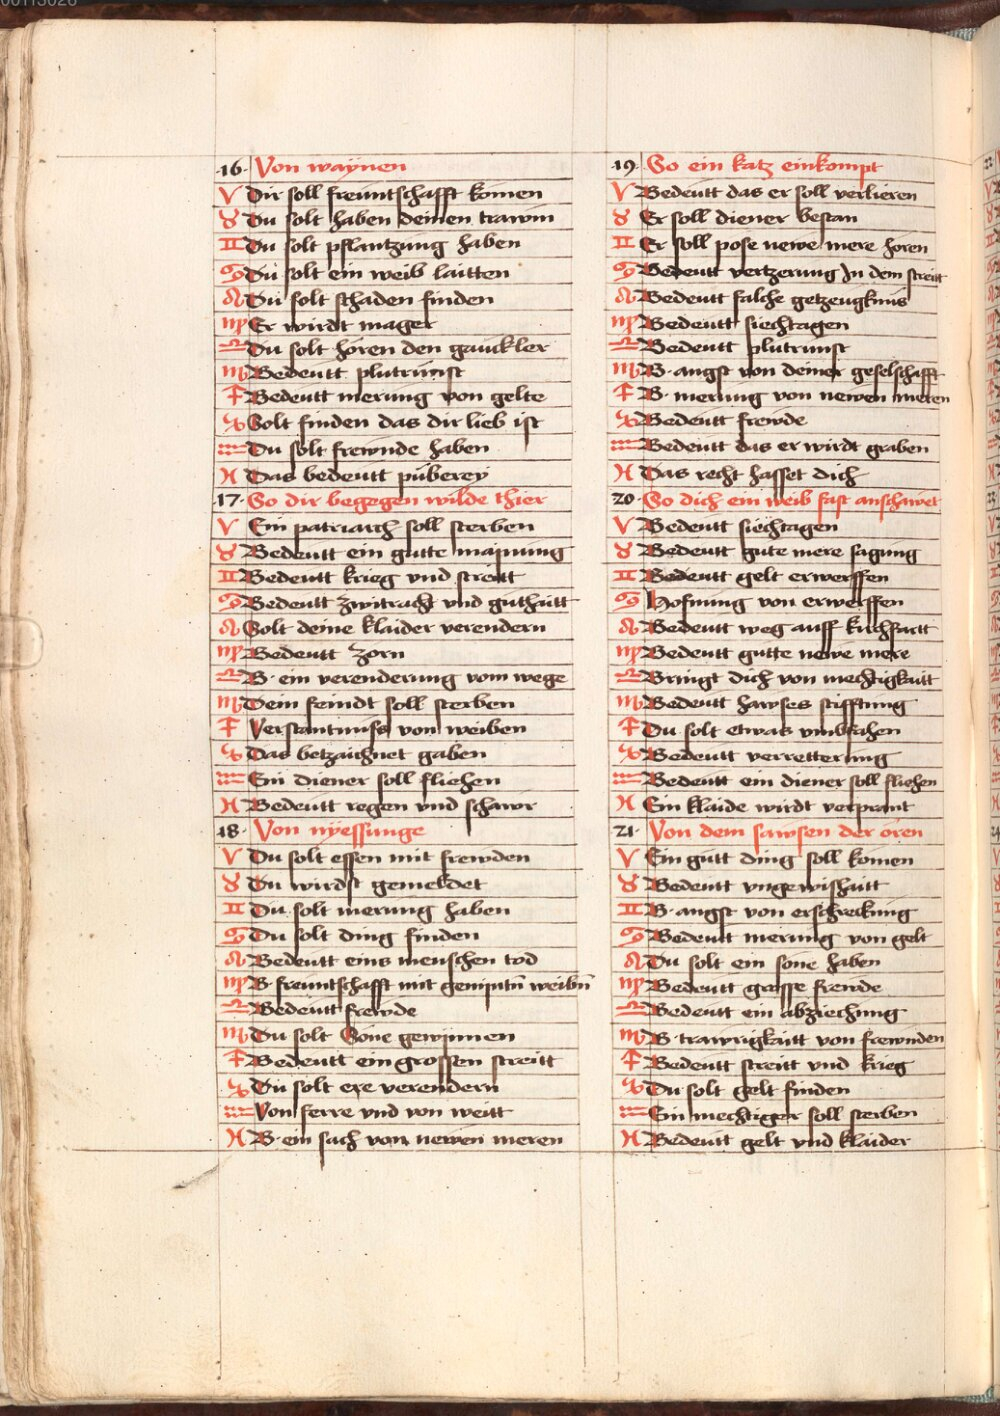 00113026
16 Von waÿnen
♈ Dir soll freuntschafft komen
♉ Du solt haben deinen trawm
♊ Du solt pflantzung haben
♋ Du solt ein weib laitten
♌ Du solt schaden finden
♍ Er wirdt mager
♎ Du solt hören den gauckler
♏ Bedeutt plutrunst
♐ Bedeutt merung von gelte
♑ Solt finden das dir lieb ist
♒ Du solt frewnde haben
♓ Das bedeutt püberey
17 So dir begegen wilde thier
♈ Ein patriarch soll sterben
♉ Bedeutt ein gutte mainung
♊ Bedeutt krieg vnd streitt
♋ Bedeutt zwitracht vnd guthaitt
♌ Solt deine klaider verendern
♍ Bedeutt zorn
♎ B· ein verenderung vom wege
♏ Dein feindt soll sterben
♐ Verstantnuss von weiben
♑ Das betzaichnet gaben
♒ Ein diener soll fliehen
♓ Bedeutt regen vnd schawr
18· Von nÿessunge
♈ Du solt essen mit frewden
♉ Du wirdst gemeldet
♊ Du solt merung haben
♋ Du solt ding finden
♌ Bedeutt eins menschen tod
♍ B· freuntschafft mit weibn̄
♎ Bedeutt frewde
♏ Du solt Söne gewinnen
♐ Bedeutt ein grossen streitt
♑ Du solt ere verendern
♒ Von ferre vnd von weitt
♓ B· ein sach von newen meren
19· So ein katz einkompt
♈ Bedeutt das er soll verlieren
♉ Er soll diener bestan
♊ Er soll pose newe mere horen
♋ Bedeutt vertzerung Jn dem streitt
♌ Bedeutt falche getzeugknus
♍ Bedeutt siechtagen
♎ Bedeutt plutrunst
♏ B· angst von deiner geselschafft
♐ B· merung von newen meren
♑ Bedeutt frewde
♒ Bedeutt das er wirdt graben
♓ Das recht hasset dich
20· So dich ein weib fast anschawet
♈ Bedeutt siechtagen
♉ Bedeutt gute mere sagung
♊ Bedeutt gelt erwerffen
♋ Hofnung von erwerffen
♌ Bedeutt weg auff kirchfartt
♍ Bedeutt gutte newe mere
♎ Bringt dich von mechtigkaitt
♏ Bedeutt hawses stifftung
♐ Du solt etwas vmbfahen
♑ Bedeutt verretterung
♒ Bedeutt ein diener soll fliehen
♓ Ein klaide wirdt verprant
21· Von dem sawsen der oren
♈ Ein gutt ding soll komen
♉ Bedeutt vngewishaitt
♊ B· angst von erschreckung
♋ Bedeutt merung von gelt
♌ Du solt ein sone haben
♍ Bedeutt grosse frewde
♎ Bedeutt ein abziechung
♏ B· trawrigkaitt von frewnden
♐ Bedeutt streitt vnd krieg
♑ Du solt gelt finden
♒ Ein mechtiger soll sterben
♓ Bedeutt gelt vnd klaider